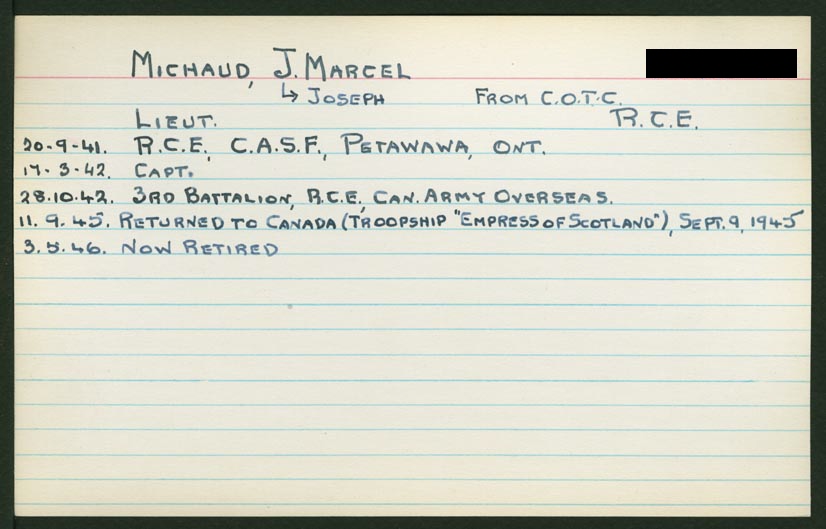 MICHAUD, J. MARCEL
↳ JOSEPH FROM C.O.T.C.
LIEUT. R.C.E.
20-9-41. R.C.E., C.A.S.F., PETAWAWA, ONT.
17-3-42. CAPT.
28.10.42. 3RD BATTALION, R.C.E., CAN. ARMY OVERSEAS.
11.9.45. RETURNED TO CANADA (TROOPSHIP "EMPRESS OF SCOTLAND"), SEPT. 9, 1945
3.5.46. NOW RETIRED